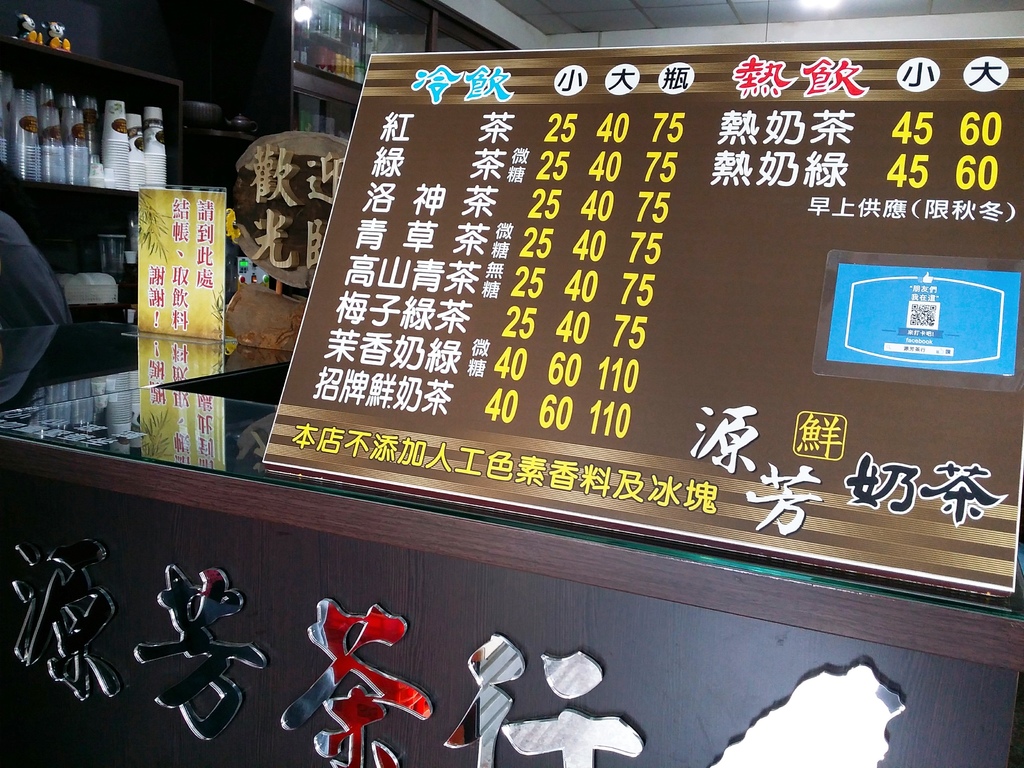 冷飲 小 大 瓶 熱飲 小 大
紅茶 25 40 75 熱奶茶 45 60
綠茶 微糖 25 40 75 熱奶綠 45 60
洛神茶 25 40 75 早上供應(限秋冬)
青草茶 微糖 25 40 75
高山青茶 無糖 25 40 75
梅子綠茶 25 40 75
茉香奶綠 微糖 40 60 110
招牌鮮奶茶 40 60 110
本店不添加人工色素香料及冰塊
源芳 鮮 奶茶
"朋友們
我在這"
來打卡吧!
facebook
歡迎
光臨
請到此處
結帳、取飲料
謝謝!
源芳茶行